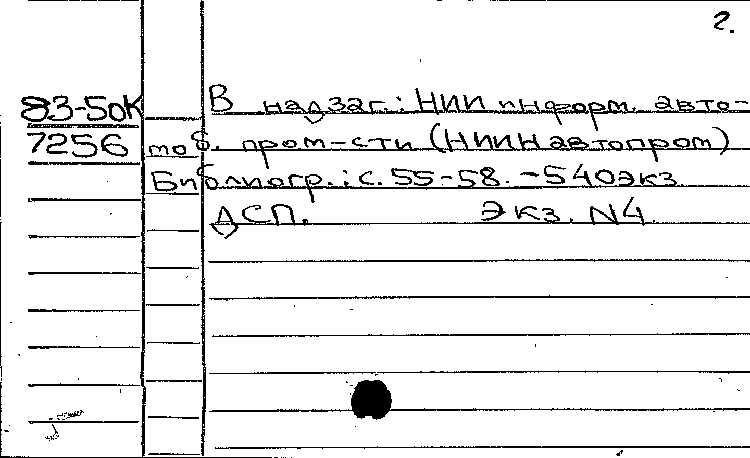 2.
83-5ок В надзаг.: НИИ информ. авто-
7256 моб. пром-сти (НИИНавтопром)
Библиогр.: с. 55-58. - 540экз.
ДСП. Экз. N4.